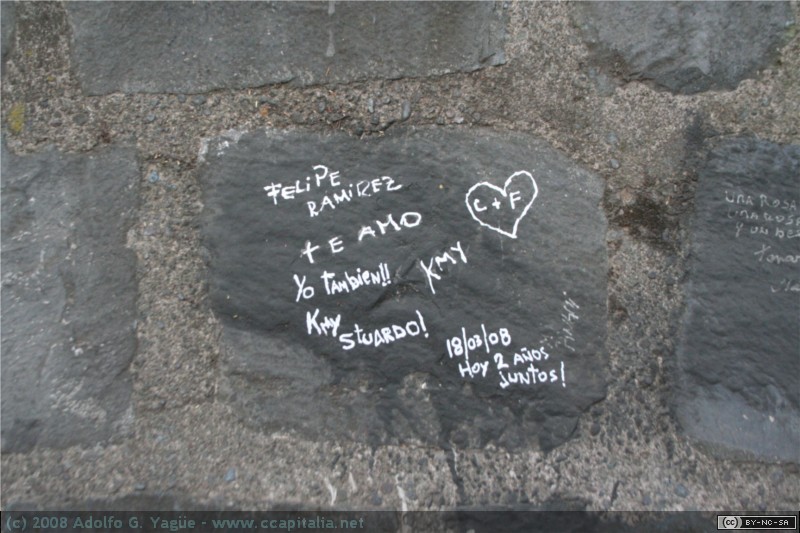 FELiPE
RAMiREZ
C + F
tE AMO
KMY
Yo tAMBiEN!!
KMY
StUARDO!
18/03/08
HOY 2 AÑOS
JUNtOS!
UNA ROSA
(c) 2008 Adolfo G. Yagüe - www.ccapitalia.net
cc BY-NC-SA